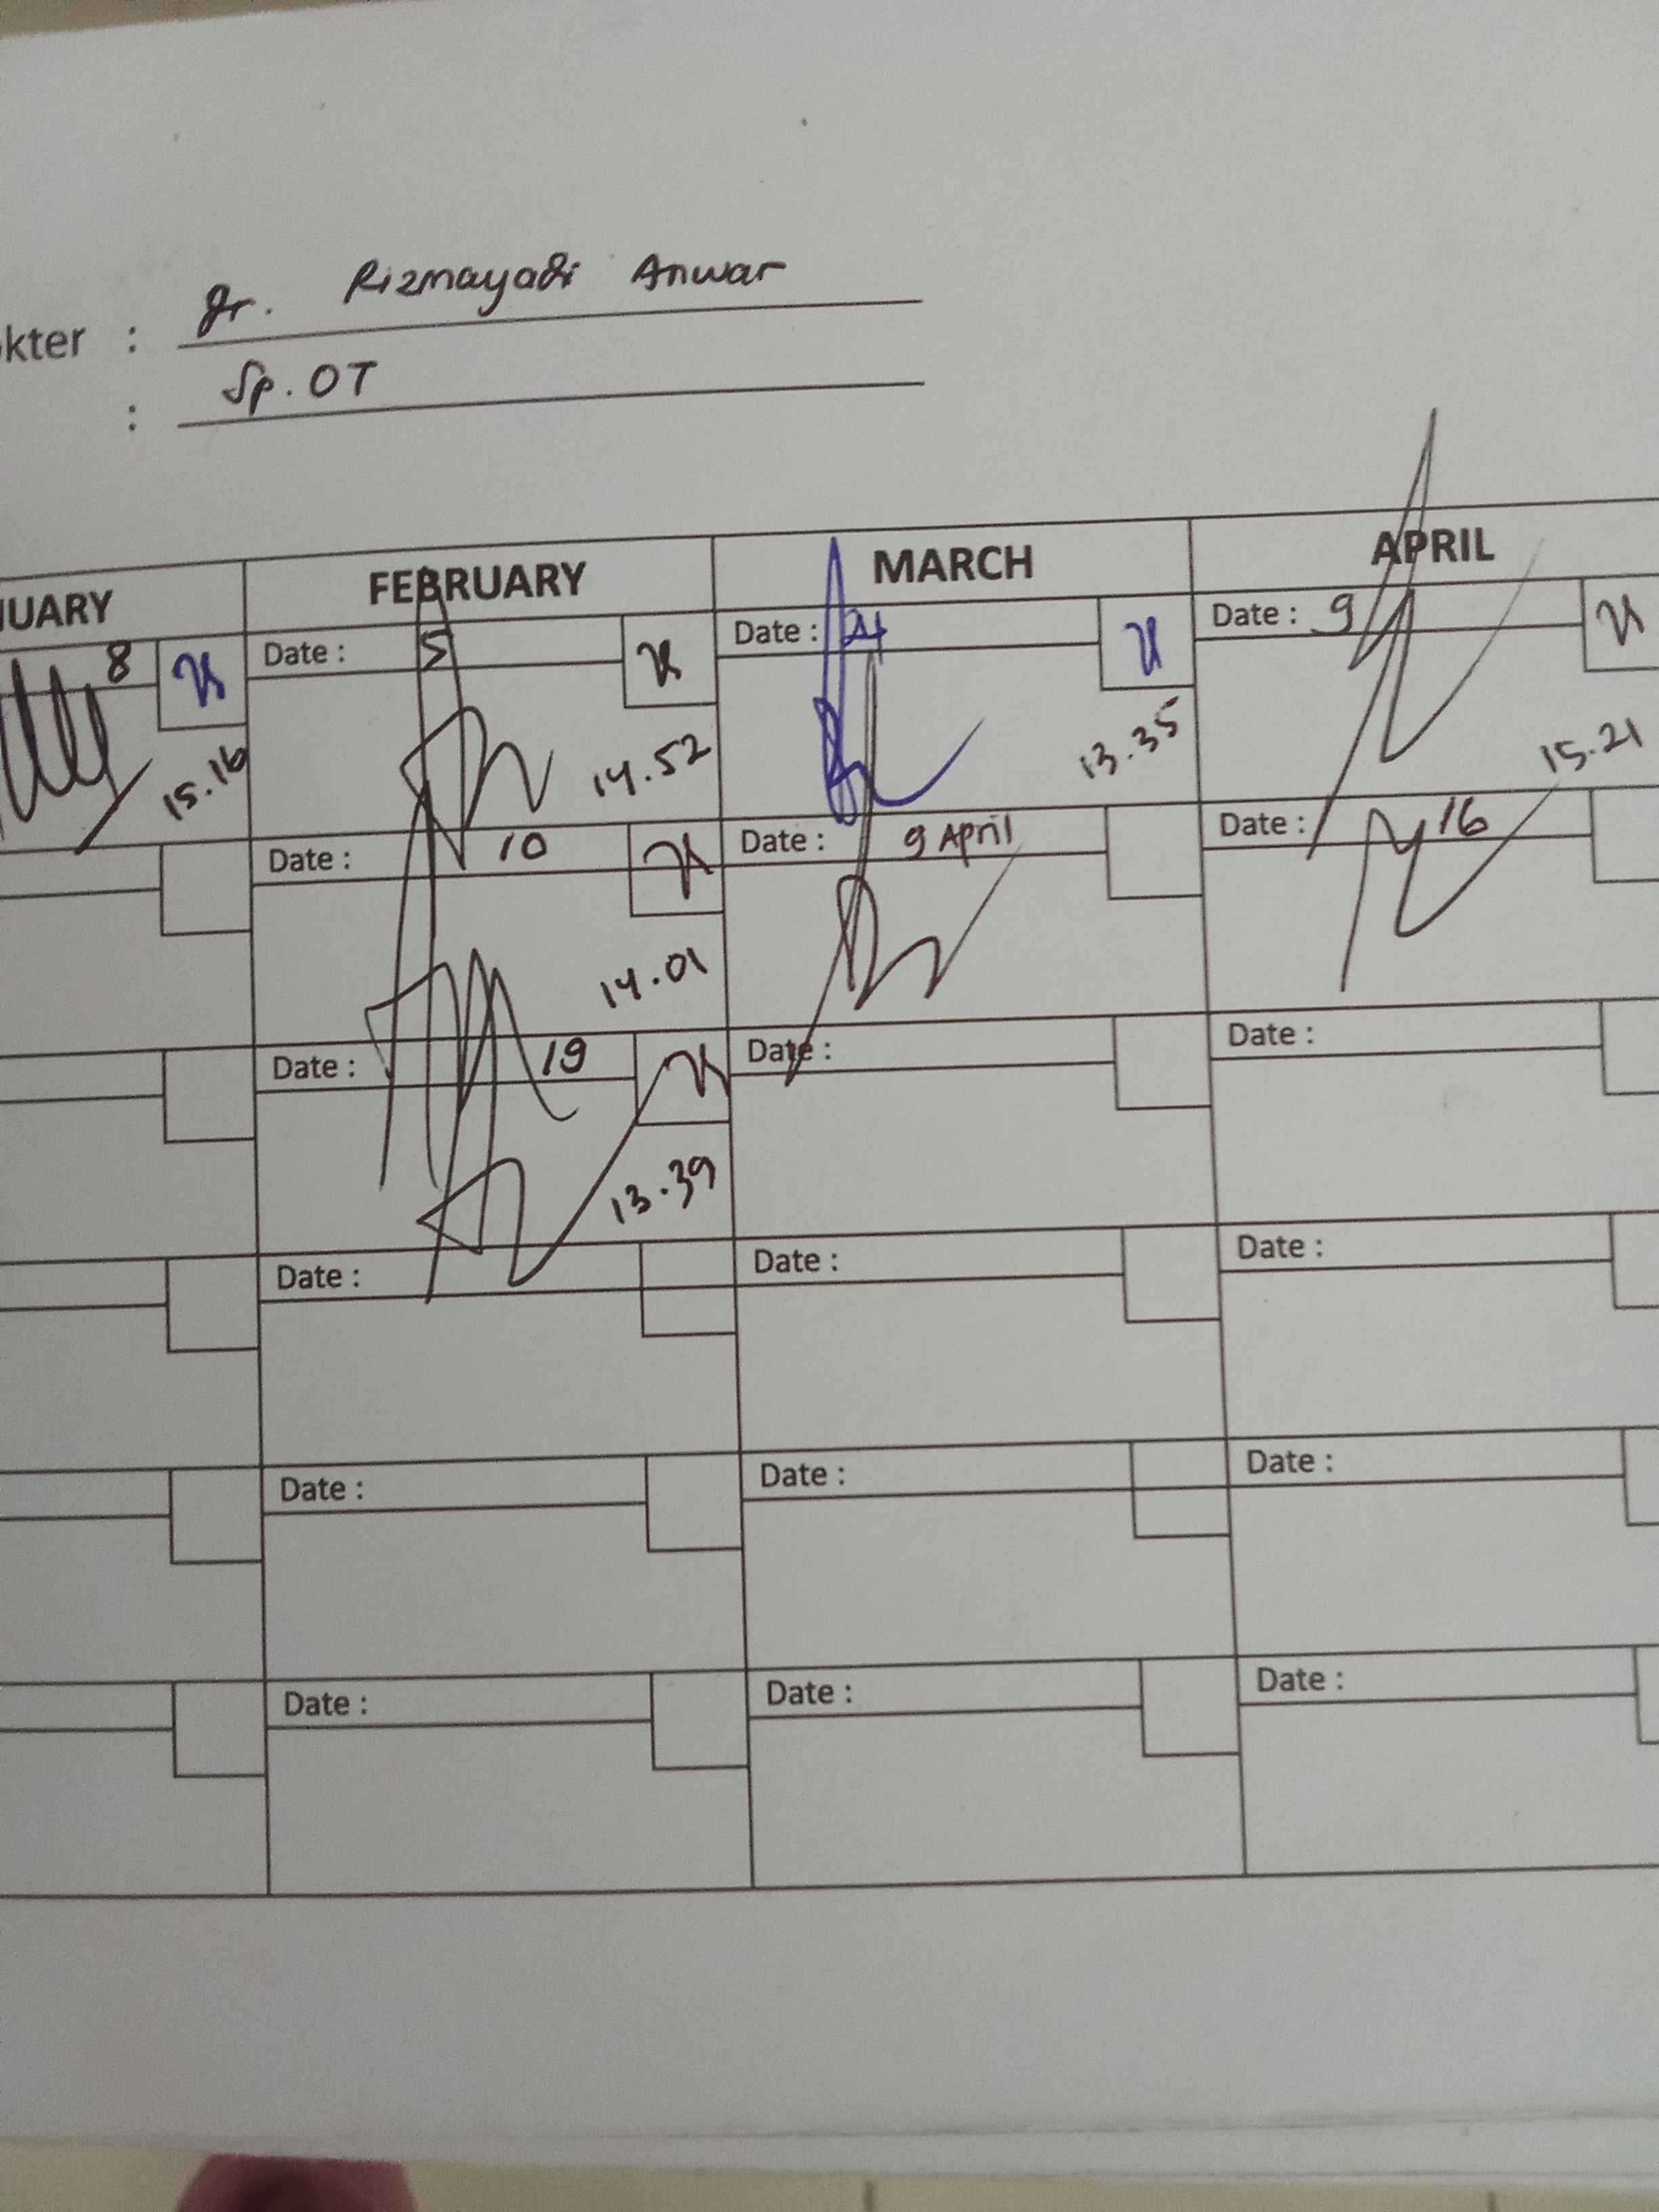 kter : dr. Rizmayadi Anwar
: Sp.OT
UARY FEBRUARY MARCH APRIL
8 Date : 5 Date : 4 Date : 9
15.16 14.52 13.35 15.21
Date : 10 Date : 9 April Date : 16
14.01
Date : 19 Date : Date :
13.39
Date : Date : Date :
Date : Date : Date :
Date : Date : Date :